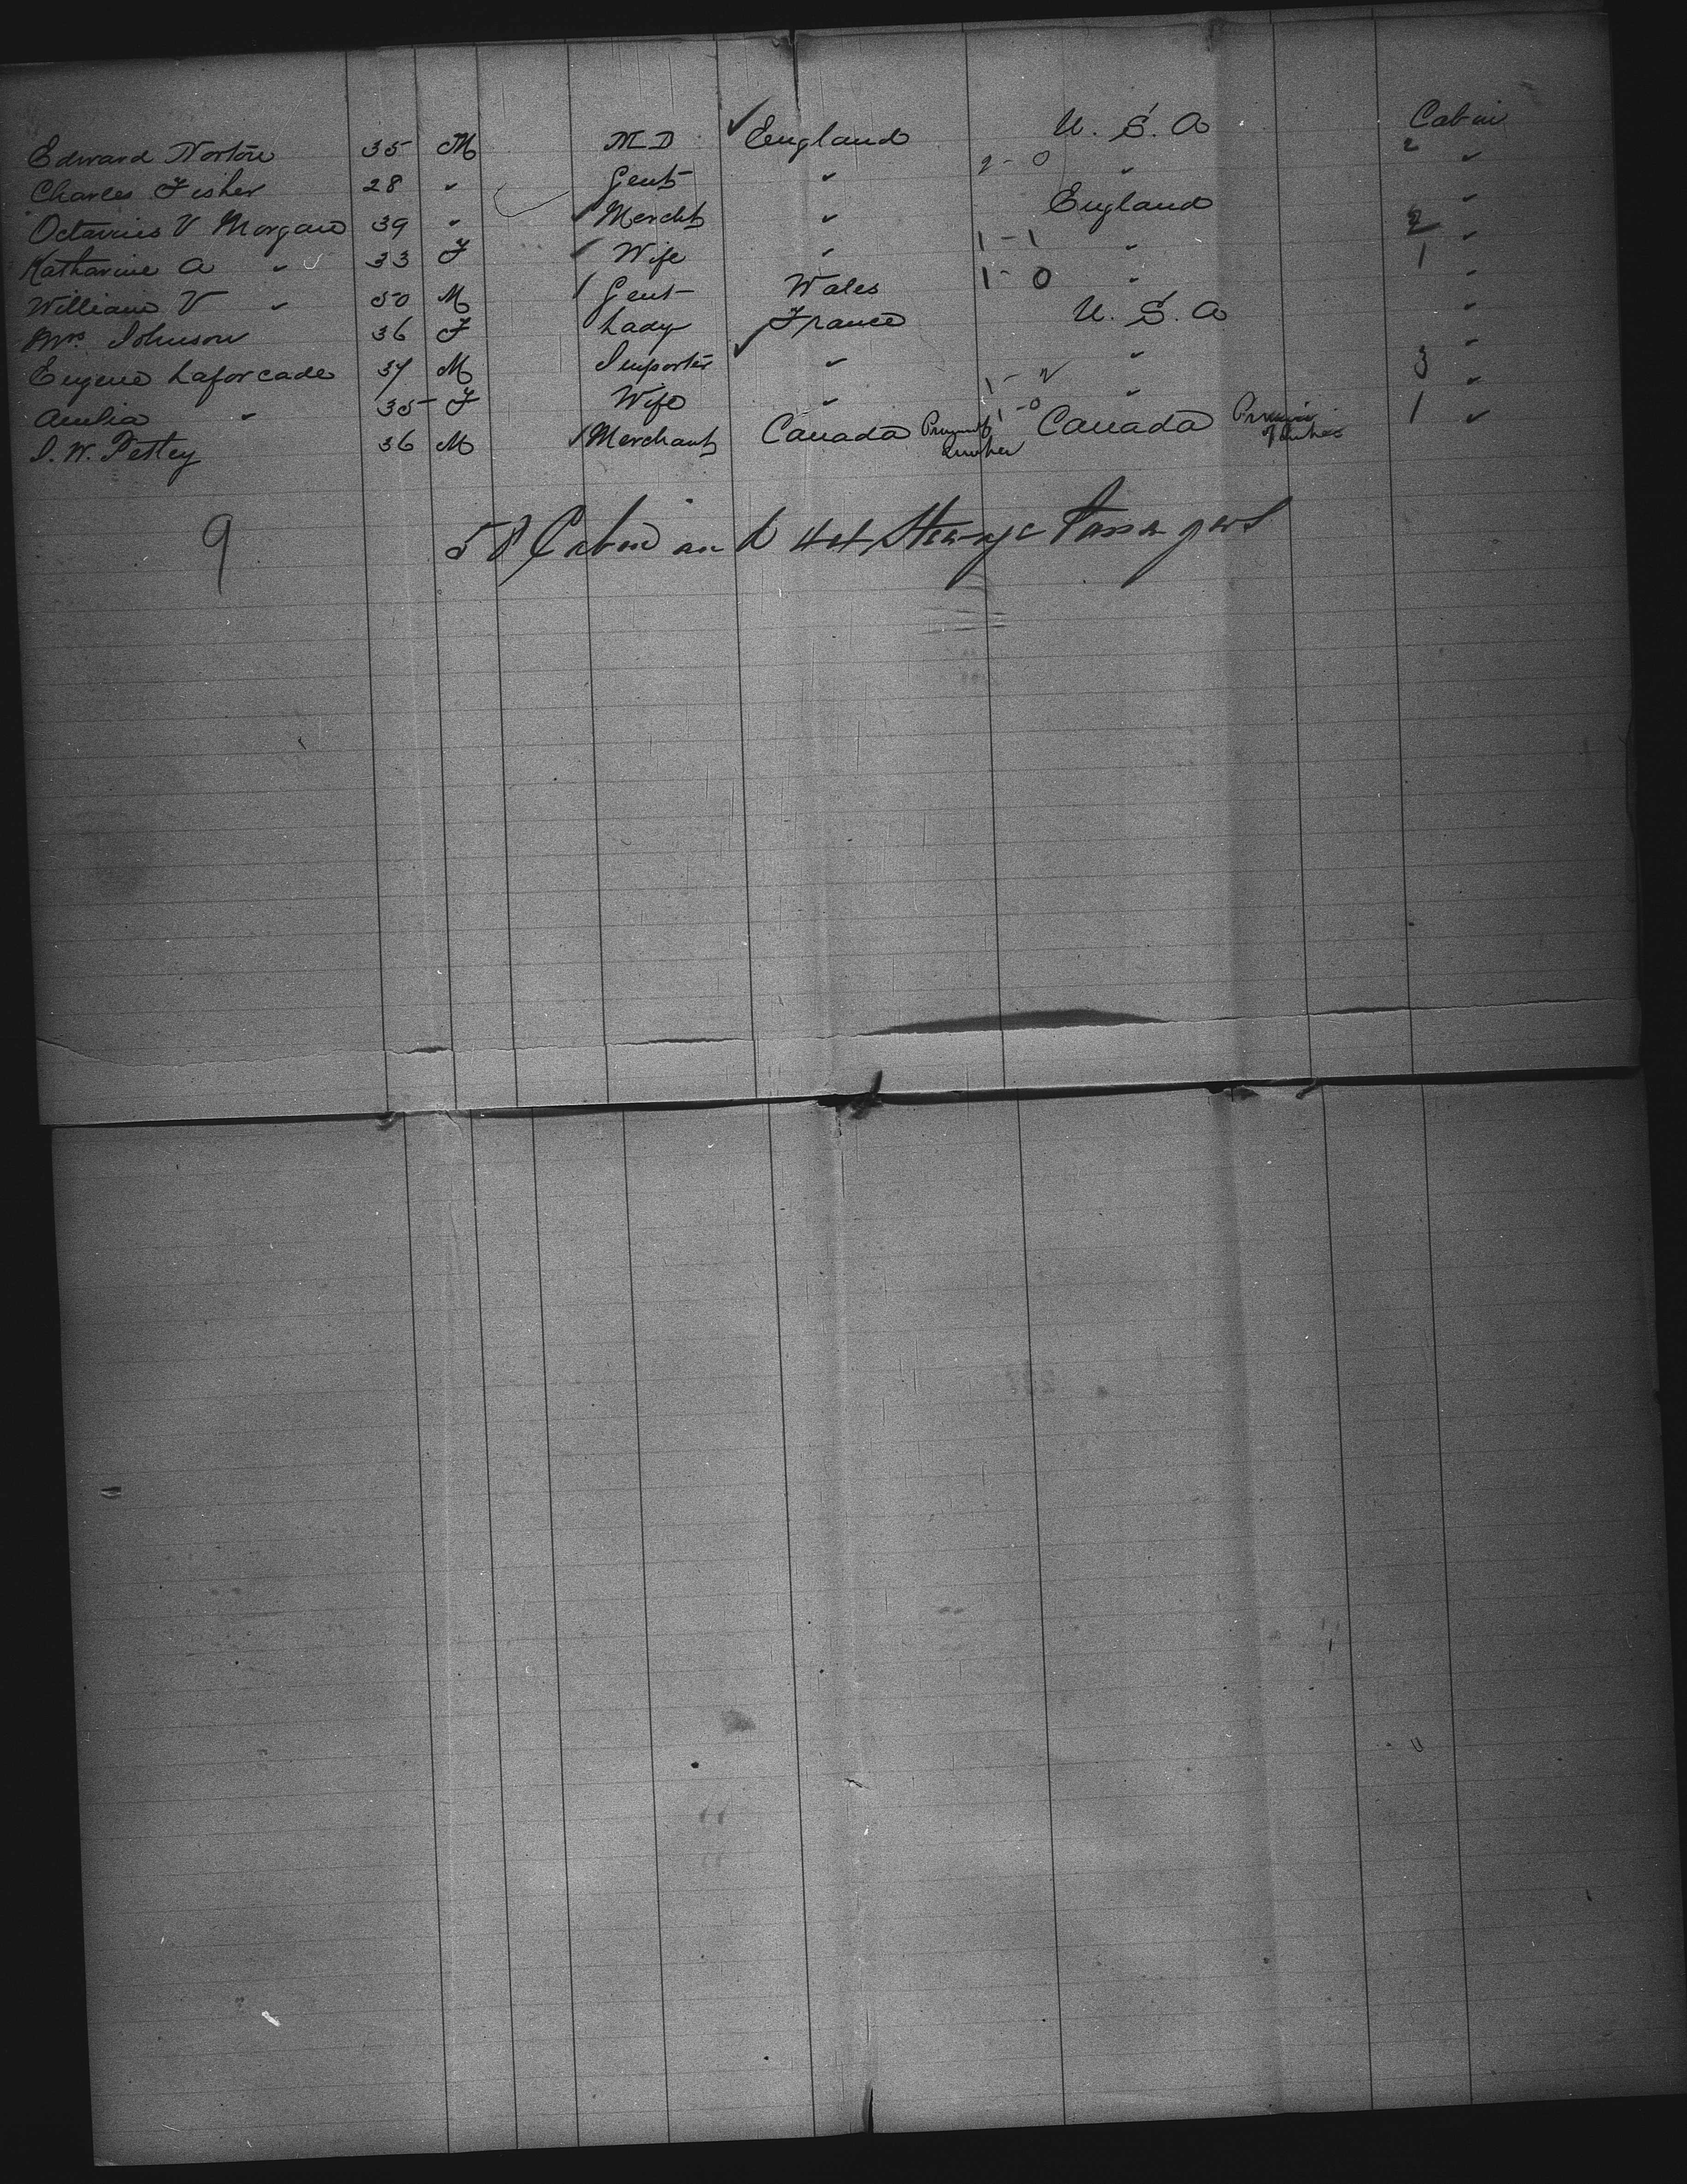 Edward Norton 35 M M D ✓ England U. S. A Cabin
2
Charles Fisher 28 " Gent " 2-0 " "
Octavius V Morgan 39 " Mercht " England "
2
Katharine A " 33 F Wife " 1-1 " "
1
William V " 50 M Gent Wales 1-0 " "
Mrs Johnson 36 F Lady France U. S. A "
Eugene Laforcade 37 M Importer " " "
3
Amelia " 35 F Wife " 1-2 " "
1-0
I. W. Merchant Canada Canada 36 M 1 "
9 58 Cabin and 44 Steerage Passengers